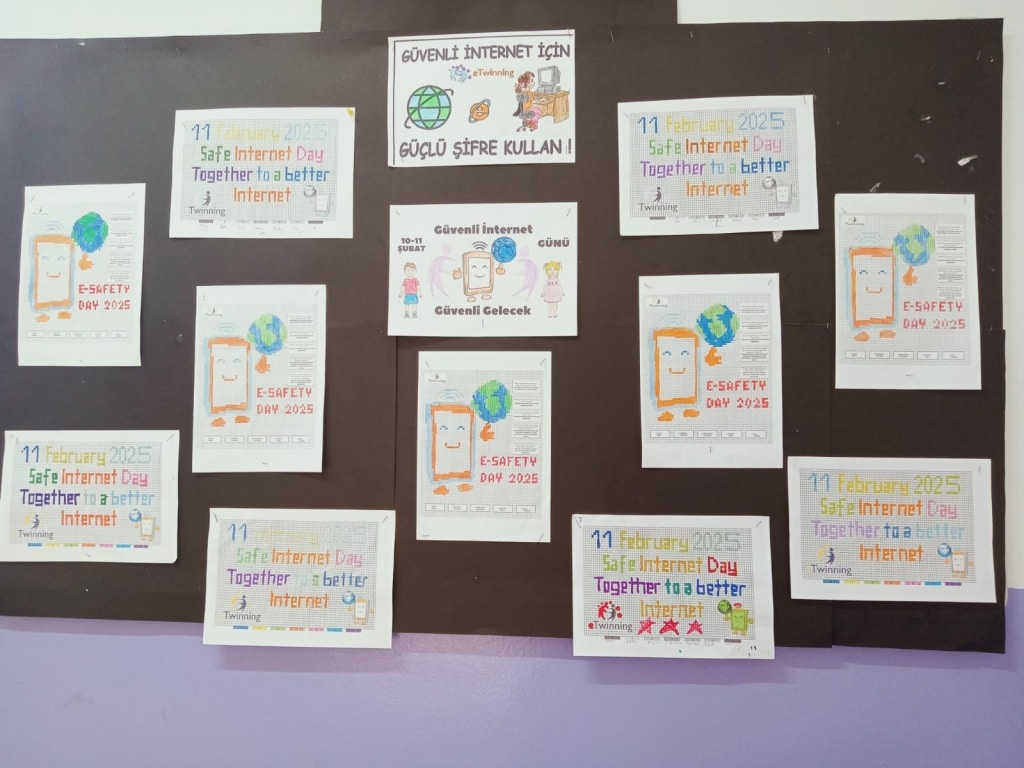 GÜVENLİ İNTERNET İÇİN
eTwinning
GÜÇLÜ ŞİFRE KULLAN !
11 February 2025
Safe Internet Day
Together to a better
Internet
Twinning
11 February 2025
Safe Internet Day
Together to a better
Internet
Twinning
E-SAFETY
DAY 2025
10-11
ŞUBAT
Güvenli İnternet
GÜNÜ
Güvenli Gelecek
E-SAFETY
DAY 2025
E-SAFETY
DAY 2025
E-SAFETY
DAY 2025
E-SAFETY
DAY 2025
11 February 2025
Safe Internet Day
Together to a better
Internet
Twinning
11 February 2025
Safe Internet Day
Together to a better
Internet
Twinning
11 February 2025
Safe Internet Day
Together to a better
Internet
eTwinning
11 February 2025
Safe Internet Day
Together to a better
Internet
Twinning